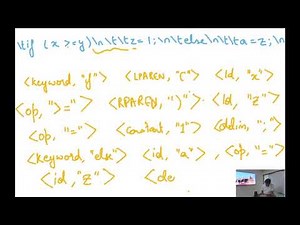 \tif (x >=y)\n\t\tz=1;\n\telse\n\t\ta=z;\n
<keyword, "if"> <LPAREN, "("> <Id, "x">
<op, ">="> <RPAREN, ")"> <Id, "z">
<op, "="> <constant, "1"> <delim, ";">
<keyword, "else"> <id, "a">, <op, "=">
<id, "z"> <de